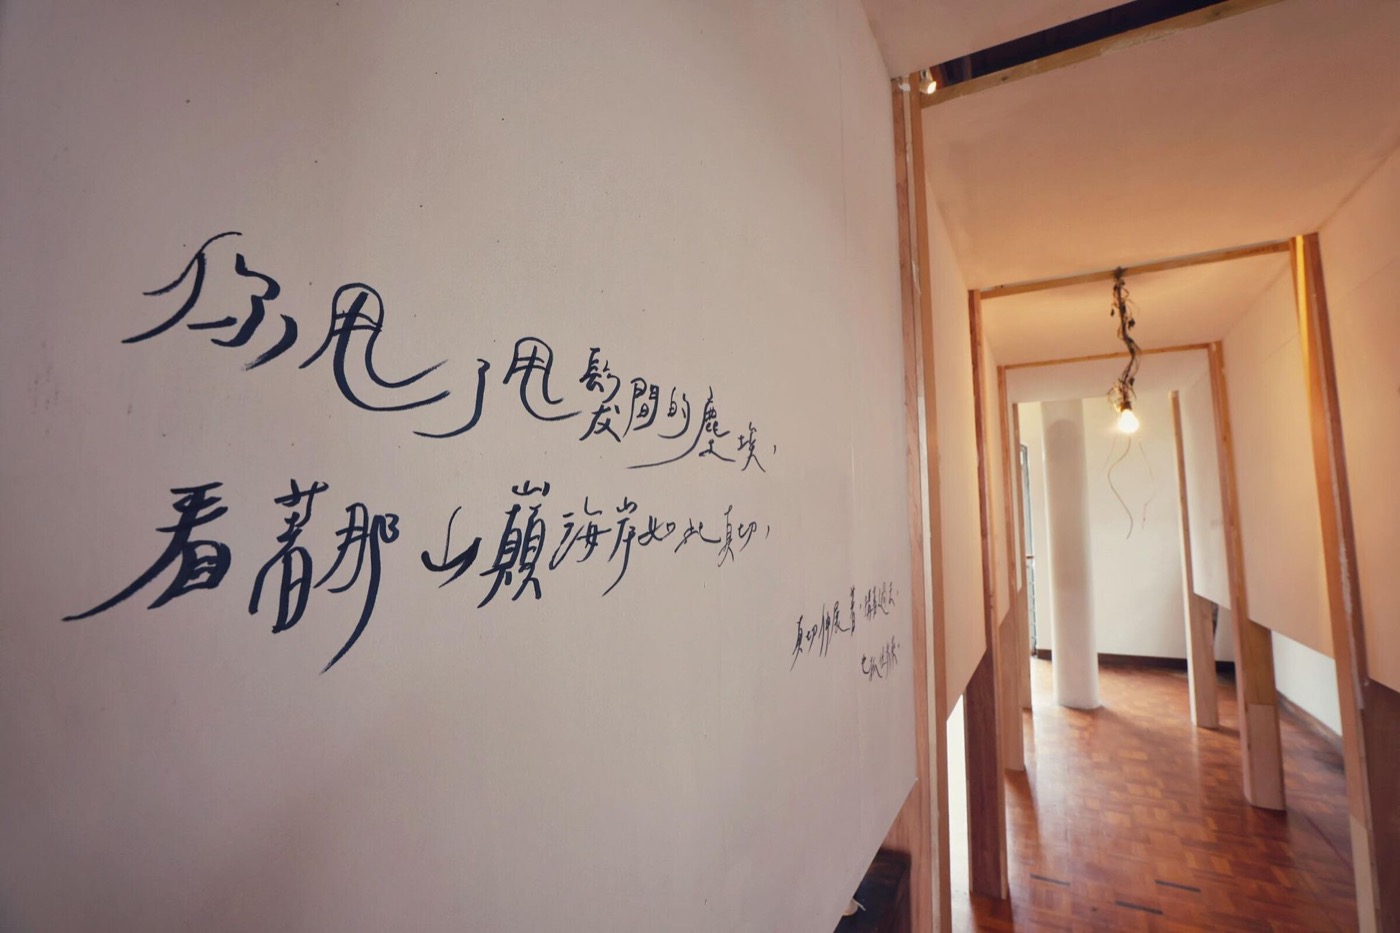 你甩了甩髮間的塵埃，
看著那山巔海岸如此真切，
真切伸展著，